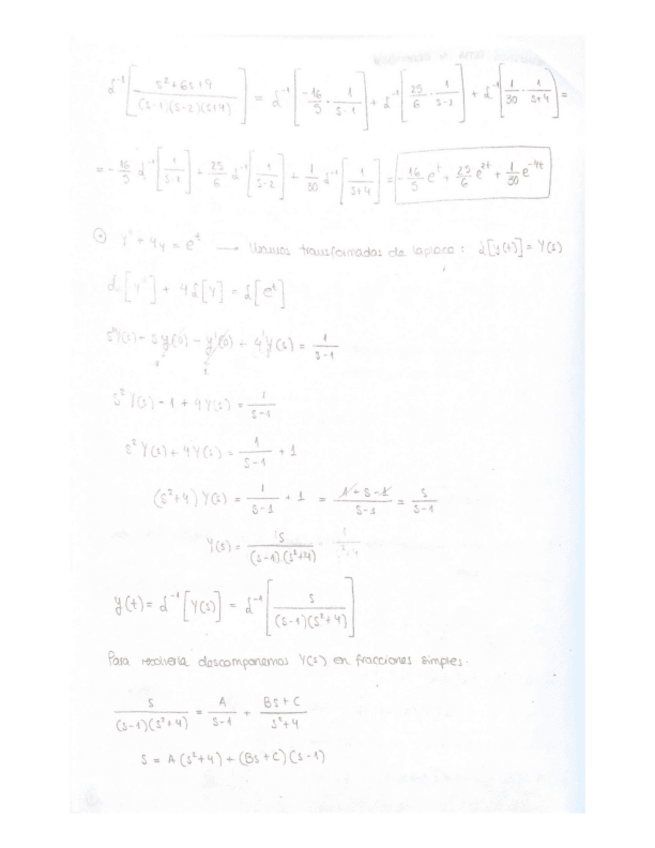 ℒ⁻¹[(s²+6s+9)/((s-1)(s-2)(s+4))] = ℒ⁻¹[-16/5 · 1/(s-1)] + ℒ⁻¹[25/6 · 1/(s-2)] + ℒ⁻¹[1/30 · 1/(s+4)] =
= -16/5 ℒ⁻¹[1/(s-1)] + 25/6 ℒ⁻¹[1/(s-2)] + 1/30 ℒ⁻¹[1/(s+4)] = -16/5 e^t + 25/6 e^{2t} + 1/30 e^{-4t}
y'' + 4y = e^t → Usamos transformadas de laplace: ℒ[y(t)] = Y(s)
ℒ[y''] + 4ℒ[y] = ℒ[e^t]
s²Y(s) - sy(0) - y'(0) + 4Y(s) = 1/(s-1)
s²Y(s) - 1 + 4Y(s) = 1/(s-1)
s²Y(s) + 4Y(s) = 1/(s-1) + 1
(s²+4) Y(s) = 1/(s-1) + 1 = (1+s-1)/(s-1) = s/(s-1)
Y(s) = s/((s-1)·(s²+4))
y(t) = ℒ⁻¹[Y(s)] = ℒ⁻¹[s/((s-1)(s²+4))]
Para resolverla descomponemos Y(s) en fracciones simples.
s/((s-1)(s²+4)) = A/(s-1) + (Bs+C)/(s²+4)
s = A·(s²+4) + (Bs+C)(s-1)